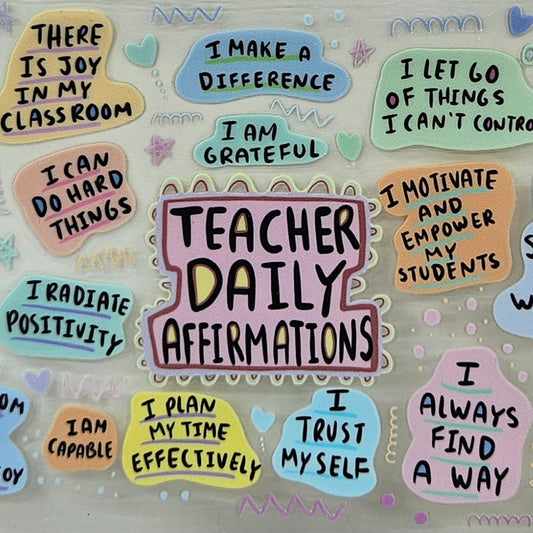 THERE
IS JOY
IN MY
CLASSROOM
I MAKE A
DIFFERENCE
I LET GO
OF THINGS
I CAN'T CONTRO
I AM
GRATEFUL
I CAN
DO HARD
THINGS
TEACHER
DAILY
AFFIRMATIONS
I MOTIVATE
AND
EMPOWER
MY
STUDENTS
I RADIATE
POSITIVITY
I AM
CAPABLE
I PLAN
MY TIME
EFFECTIVELY
I
TRUST
MYSELF
I
ALWAYS
FIND
A WAY